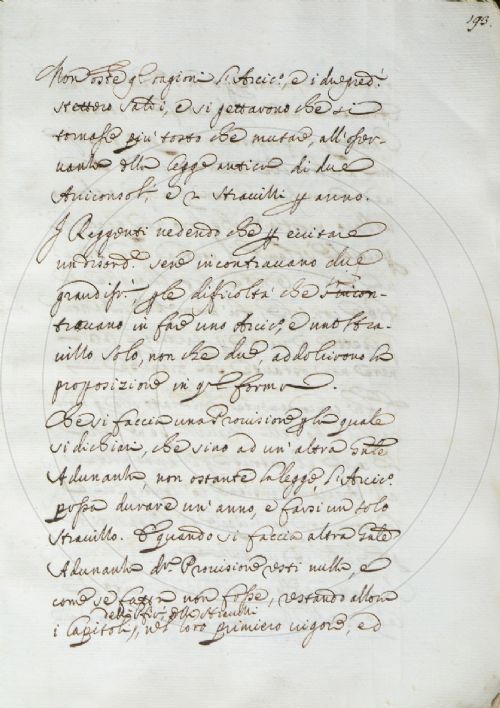 193.
Non oste q.li ragioni l'Arcic.o, e i due pred.i
stettero saldi, e si gettavono che si
tornasse più tosto che mutare, all'osser-
uanza della legge antica di due
Arciconsoli, e 2 Stravilli p anno.
I Reggenti uedendo che p euitare
un disord.e se ne incontrauano due
grandiss.i, p le difficoltà che s'incon-
trauano in fare uno Arcic.o, e uno Stra-
uillo solo, non che due, addolcirono la
proposizione in q.ta forma.
Che si faccia una Prouisione p la quale
si dichiari, che sino ad un'altra gnãle
Adunanza, non ostante la legge, l'Arcic.o
possa durare un'anno, e farsi un solo
Strauillo. E quando si faccia altra gnãle
Adunanza d.a Prouisione resti nulla, e
come se fatta non fosse, restando allora
i Capitoli, dello Strauilli nel loro primiero uigore, ed